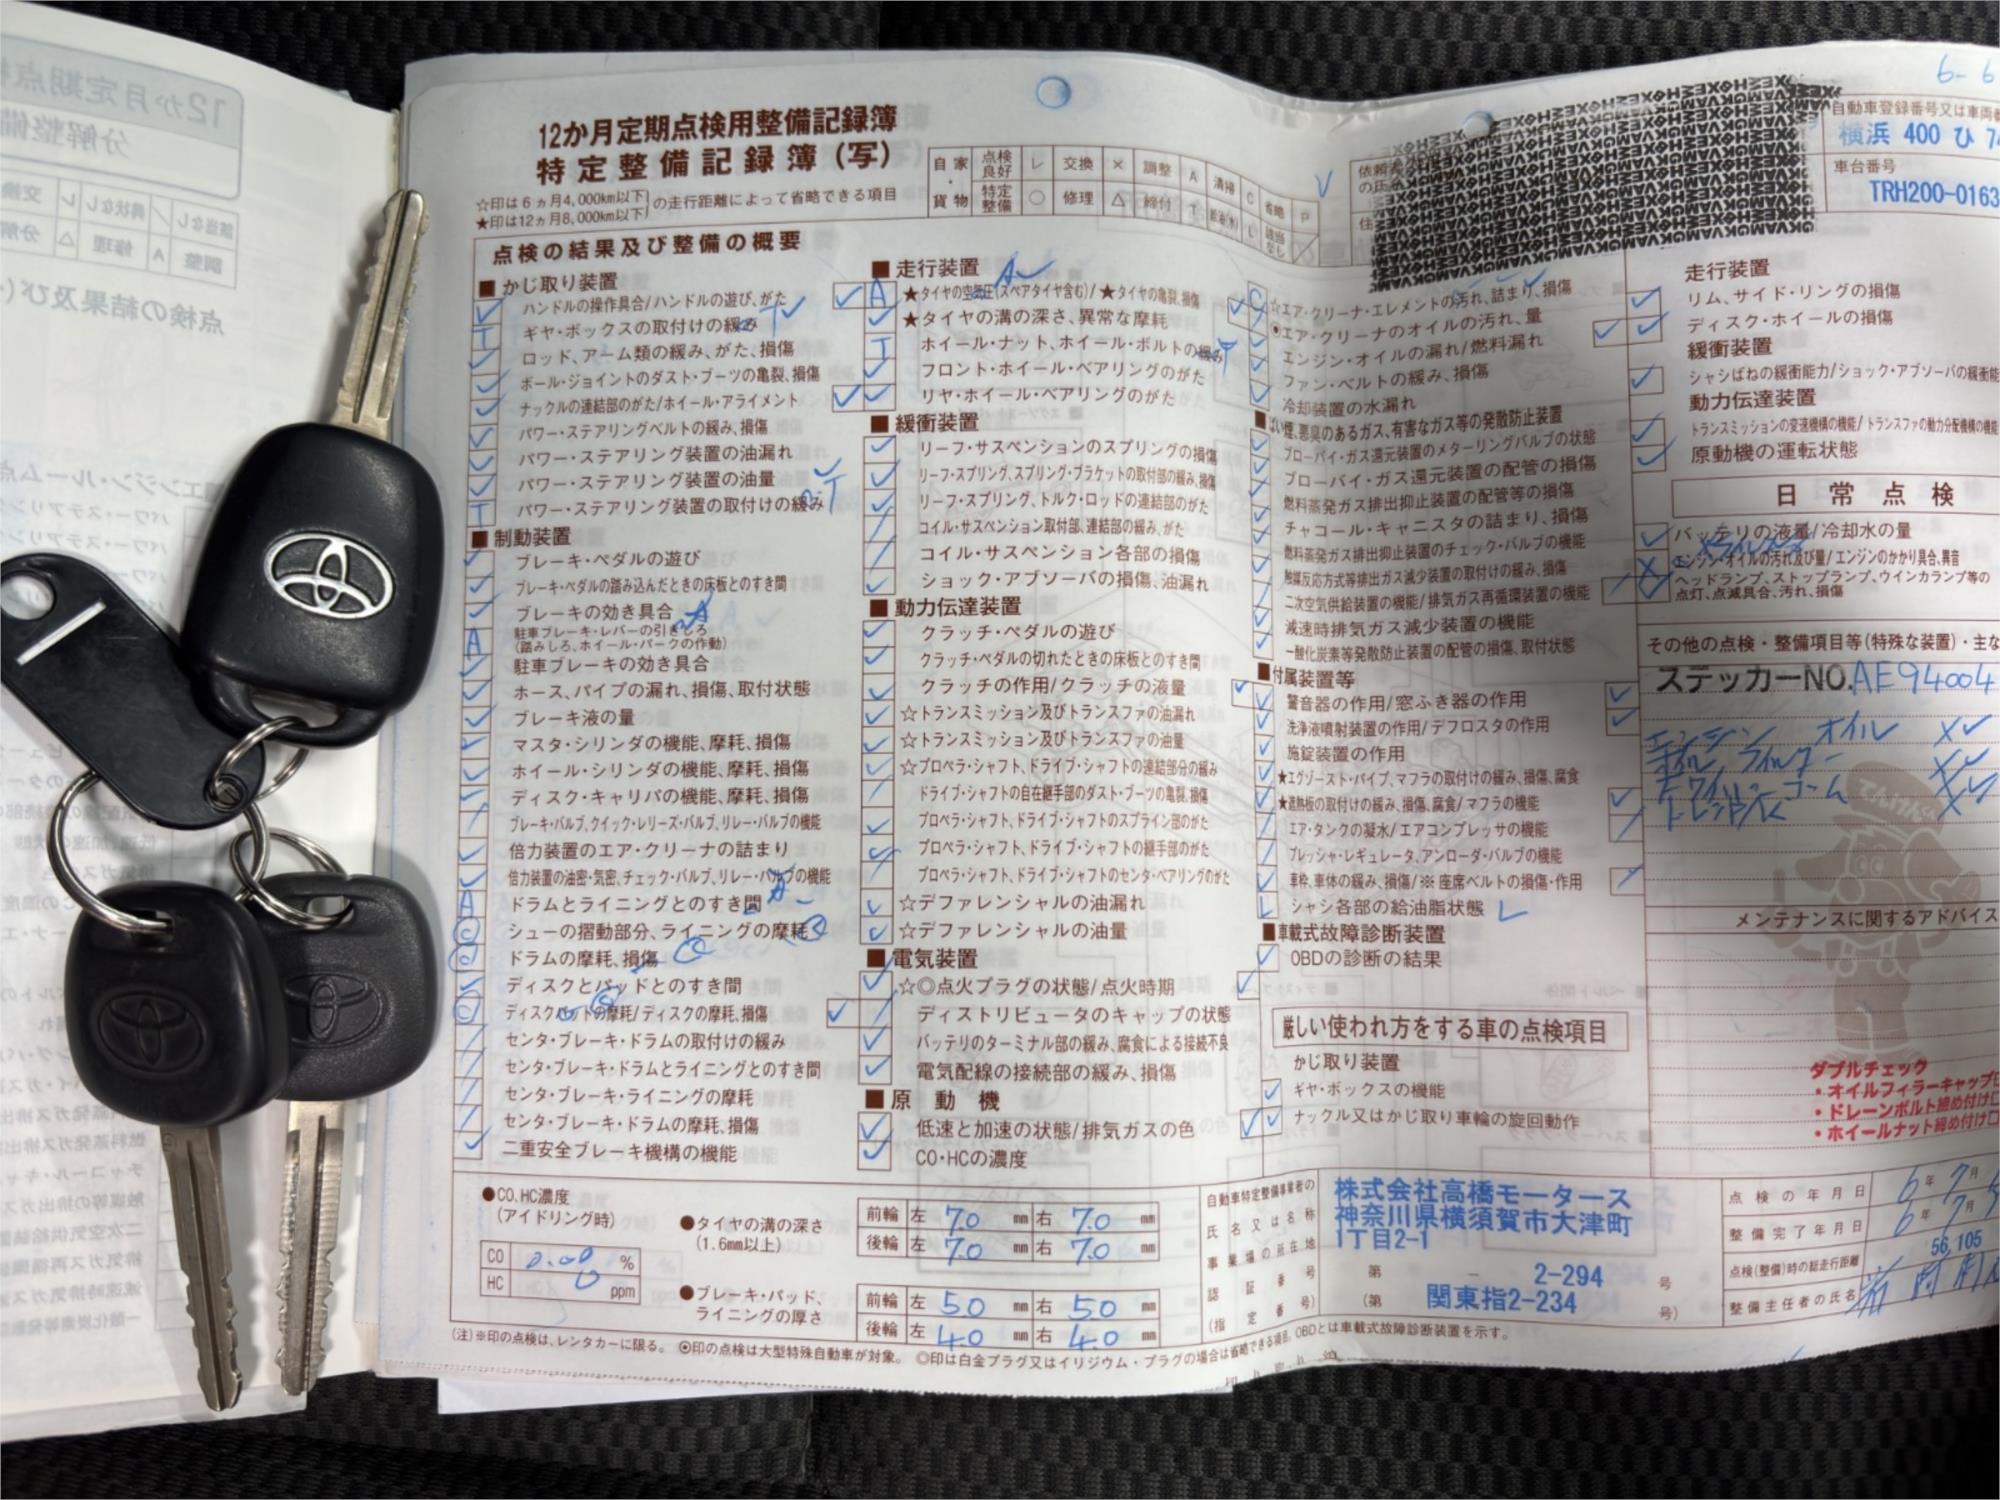 12か月定期点検用整備記録簿
特定整備記録簿（写）
☆印は6ヵ月4,000km以下
★印は12ヵ月8,000km以下
の走行距離によって省略できる項目
自家・貨物
点検良好 レ 交換 × 調整 A 清掃 C 省略 P
特定整備 ○ 修理 △ 締付 T 給油(水) L 該当なし ／
6-6
自動車登録番号又は車両番
横浜 400 ひ 74
車台番号
TRH200-0163
点検の結果及び整備の概要
■かじ取り装置
ハンドルの操作具合/ハンドルの遊び、がた
ギヤ・ボックスの取付けの緩み
ロッド、アーム類の緩み、がた、損傷
ボール・ジョイントのダスト・ブーツの亀裂、損傷
ナックルの連結部のがた/ホイール・アライメント
パワー・ステアリングベルトの緩み、損傷
パワー・ステアリング装置の油漏れ
パワー・ステアリング装置の油量
パワー・ステアリング装置の取付けの緩み
■制動装置
ブレーキ・ペダルの遊び
ブレーキ・ペダルの踏み込んだときの床板とのすき間
ブレーキの効き具合
駐車ブレーキ・レバーの引きしろ
(踏みしろ、ホイール・パークの作動)
駐車ブレーキの効き具合
ホース、パイプの漏れ、損傷、取付状態
ブレーキ液の量
マスタ・シリンダの機能、摩耗、損傷
ホイール・シリンダの機能、摩耗、損傷
ディスク・キャリパの機能、摩耗、損傷
ブレーキ・バルブ、クイック・レリーズ・バルブ、リレー・バルブの機能
倍力装置のエア・クリーナの詰まり
倍力装置の油密・気密、チェック・バルブ、リレー・バルブの機能
ドラムとライニングとのすき間
シューの摺動部分、ライニングの摩耗
ドラムの摩耗、損傷
ディスクとパッドとのすき間
ディスクパットの摩耗/ディスクの摩耗、損傷
センタ・ブレーキ・ドラムの取付けの緩み
センタ・ブレーキ・ドラムとライニングとのすき間
センタ・ブレーキ・ライニングの摩耗
センタ・ブレーキ・ドラムの摩耗、損傷
二重安全ブレーキ機構の機能
■走行装置
★タイヤの空気圧(スペアタイヤ含む)/★タイヤの亀裂、損傷
★タイヤの溝の深さ、異常な摩耗
ホイール・ナット、ホイール・ボルトの緩み
フロント・ホイール・ベアリングのがた
リヤ・ホイール・ベアリングのがた
■緩衝装置
リーフ・サスペンションのスプリングの損傷
リーフ・スプリング、スプリング・ブラケットの取付部の緩み、損傷
リーフ・スプリング、トルク・ロッドの連結部のがた
コイル・サスペンション取付部、連結部の緩み、がた
コイル・サスペンション各部の損傷
ショック・アブソーバの損傷、油漏れ
■動力伝達装置
クラッチ・ペダルの遊び
クラッチ・ペダルの切れたときの床板とのすき間
クラッチの作用/クラッチの液量
☆トランスミッション及びトランスファの油漏れ
☆トランスミッション及びトランスファの油量
☆プロペラ・シャフト、ドライブ・シャフトの連結部分の緩み
ドライブ・シャフトの自在継手部のダスト・ブーツの亀裂、損傷
プロペラ・シャフト、ドライブ・シャフトのスプライン部のがた
プロペラ・シャフト、ドライブ・シャフトの継手部のがた
プロペラ・シャフト、ドライブ・シャフトのセンタ・ベアリングのがた
☆デファレンシャルの油漏れ
☆デファレンシャルの油量
■電気装置
☆◎点火プラグの状態/点火時期
ディストリビュータのキャップの状態
バッテリのターミナル部の緩み、腐食による接続不良
電気配線の接続部の緩み、損傷
■原動機
低速と加速の状態/排気ガスの色
CO・HCの濃度
☆エア・クリーナ・エレメントの汚れ、詰まり、損傷
◉エア・クリーナのオイルの汚れ、量
エンジン・オイルの漏れ/燃料漏れ
ファン・ベルトの緩み、損傷
冷却装置の水漏れ
■ばい煙、悪臭のあるガス、有害なガス等の発散防止装置
ブローバイ・ガス還元装置のメターリングバルブの状態
ブローバイ・ガス還元装置の配管の損傷
燃料蒸発ガス排出抑止装置の配管等の損傷
チャコール・キャニスタの詰まり、損傷
燃料蒸発ガス排出抑止装置のチェック・バルブの機能
触媒反応方式等排出ガス減少装置の取付けの緩み、損傷
二次空気供給装置の機能/排気ガス再循環装置の機能
減速時排気ガス減少装置の機能
一酸化炭素等発散防止装置の配管の損傷、取付状態
■付属装置等
警音器の作用/窓ふき器の作用
洗浄液噴射装置の作用/デフロスタの作用
施錠装置の作用
★エグゾースト・パイプ、マフラの取付けの緩み、損傷、腐食
★遮熱板の取付けの緩み、損傷、腐食/マフラの機能
エア・タンクの凝水/エアコンプレッサの機能
プレッシャ・レギュレータ、アンローダ・バルブの機能
車枠、車体の緩み、損傷/※座席ベルトの損傷・作用
シャシ各部の給油脂状態
■車載式故障診断装置
OBDの診断の結果
厳しい使われ方をする車の点検項目
かじ取り装置
ギヤ・ボックスの機能
ナックル又はかじ取り車輪の旋回動作
走行装置
リム、サイド・リングの損傷
ディスク・ホイールの損傷
緩衝装置
シャシばねの緩衝能力/ショック・アブソーバの緩衝能
動力伝達装置
トランスミッションの変速機構の機能/トランスファの動力分配機構の機能
原動機の運転状態
日常点検
バッテリの液量/冷却水の量
エンジン・オイルの汚れ及び量/エンジンのかかり具合、異音
ヘッドランプ、ストップランプ、ウインカランプ等の
点灯、点滅具合、汚れ、損傷
その他の点検・整備項目等(特殊な装置)・主な
ステッカーNO.AE94004
エンジン オイル ×
メンテナンスに関するアドバイス
ダブルチェック
・オイルフィラーキャップ
・ドレーンボルト締め付け□
・ホイールナット締め付け□
●CO、HC濃度
(アイドリング時)
CO 0.00 %
HC 0 ppm
●タイヤの溝の深さ
(1.6mm以上)
前輪 左 7.0 mm 右 7.0 mm
後輪 左 7.0 mm 右 7.0 mm
●ブレーキ・パッド、
ライニングの厚さ
前輪 左 5.0 mm 右 5.0 mm
後輪 左 4.0 mm 右 4.0 mm
自動車特定整備事業者の
氏名又は名称
事業場の所在地
認証番号
(指定番号)
株式会社高橋モータース
神奈川県横須賀市大津町
1丁目2-1
第 2-294 号
(第 関東指2-234 号)
点検の年月日 6年 7月
整備完了年月日 6年 7月
点検(整備)時の総走行距離 56,105
整備主任者の氏名
(注)※印の点検は、レンタカーに限る。 ◉印の点検は大型特殊自動車が対象。 ◎印は白金プラグ又はイリジウム・プラグの場合は省略できる項目。OBDとは車載式故障診断装置を示す。